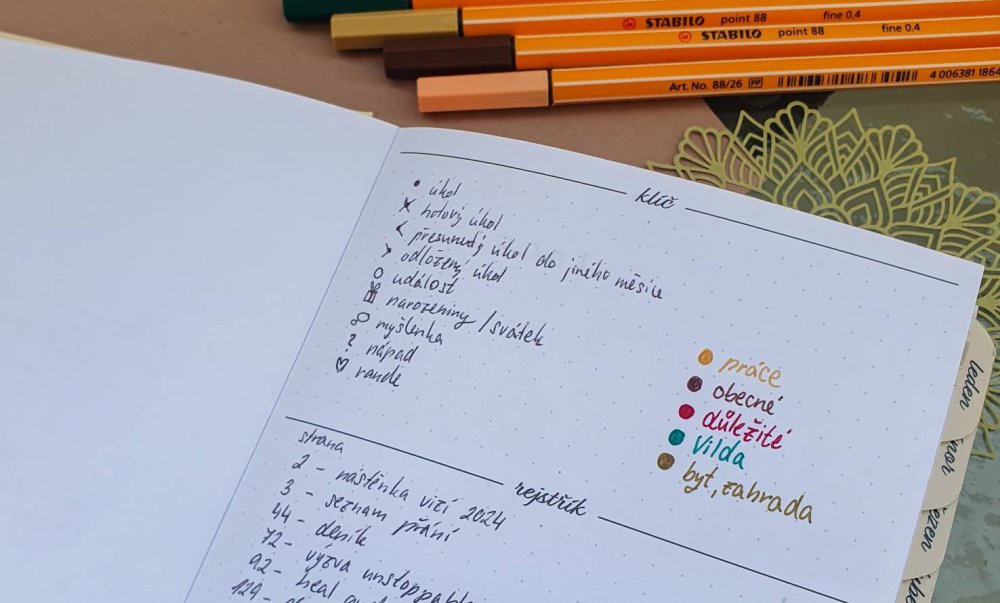 STABILO point 88 fine 0,4
STABILO point 88 fine 0,4
Art. No. 88/26 PP 4 006381 1864
klíč
• úkol
x hotový úkol
< přesunutý úkol do jiného měsíce
> odložený úkol
událost
narozeniny / svátek
myšlenka
? nápad
♡ rande
práce
obecné
důležité
vilda
byt, zahrada
leden
rejstřík
strana
2 - nástěnka vizí 2024
3 - seznam přání
44 - deník
72 - výzva unstoppable
92 - heal
129 -